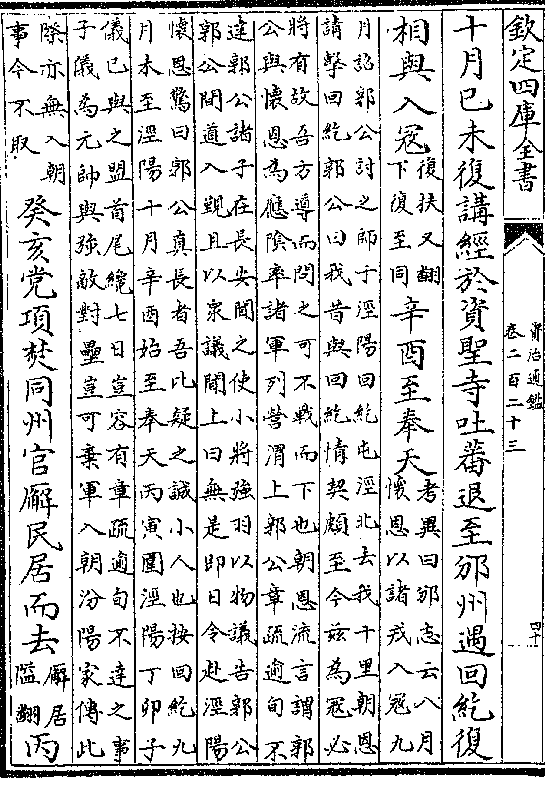 欽定四庫全書
資治通鑑
卷二百二十三
四十
十月己未復講經於資聖寺吐蕃退至邠州遇回紇復
相與入寇
復扶又翻
下復至同
辛酉至奉天
考異曰邠志云八月
懷恩以諸戎入寇九
月詔郭公討之師于涇陽回紇屯涇北去我十里朝恩
請擊回紇郭公曰我昔與回紇情契頗至今兹為寇必
將有故吾方導而問之可不戰而下也朝恩流言謂郭
公與懷恩為應陰率諸軍列營渭上郭公章疏逾旬不
達郭公諸子在長安聞之使小將強羽以物議告郭公
郭公間道入覲且以衆議聞上曰無是即日令赴涇陽
懷恩驚曰郭公真長者吾比疑之誠小人也按回紇九
月未至涇陽十月辛酉始至奉天丙寅圍涇陽丁卯子
儀已與之盟首尾纔七日豈容有章疏逾旬不達之事
子儀為元帥與強敵對壘豈可棄軍入朝汾陽家傳此
際亦無入朝
事今不取
癸亥党項焚同州官廨民居而去
廨居
隘翻
丙